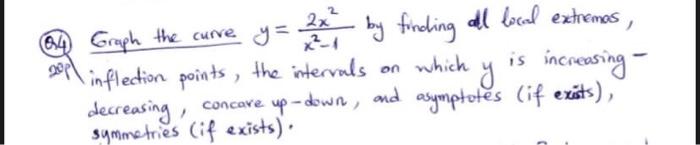 Q4) Graph the curve y = 2x²/(x²-1) by finding all local extremas,
20p inflection points, the intervals on which y is increasing-
decreasing, concave up-down, and asymptotes (if exists),
symmetries (if exists).